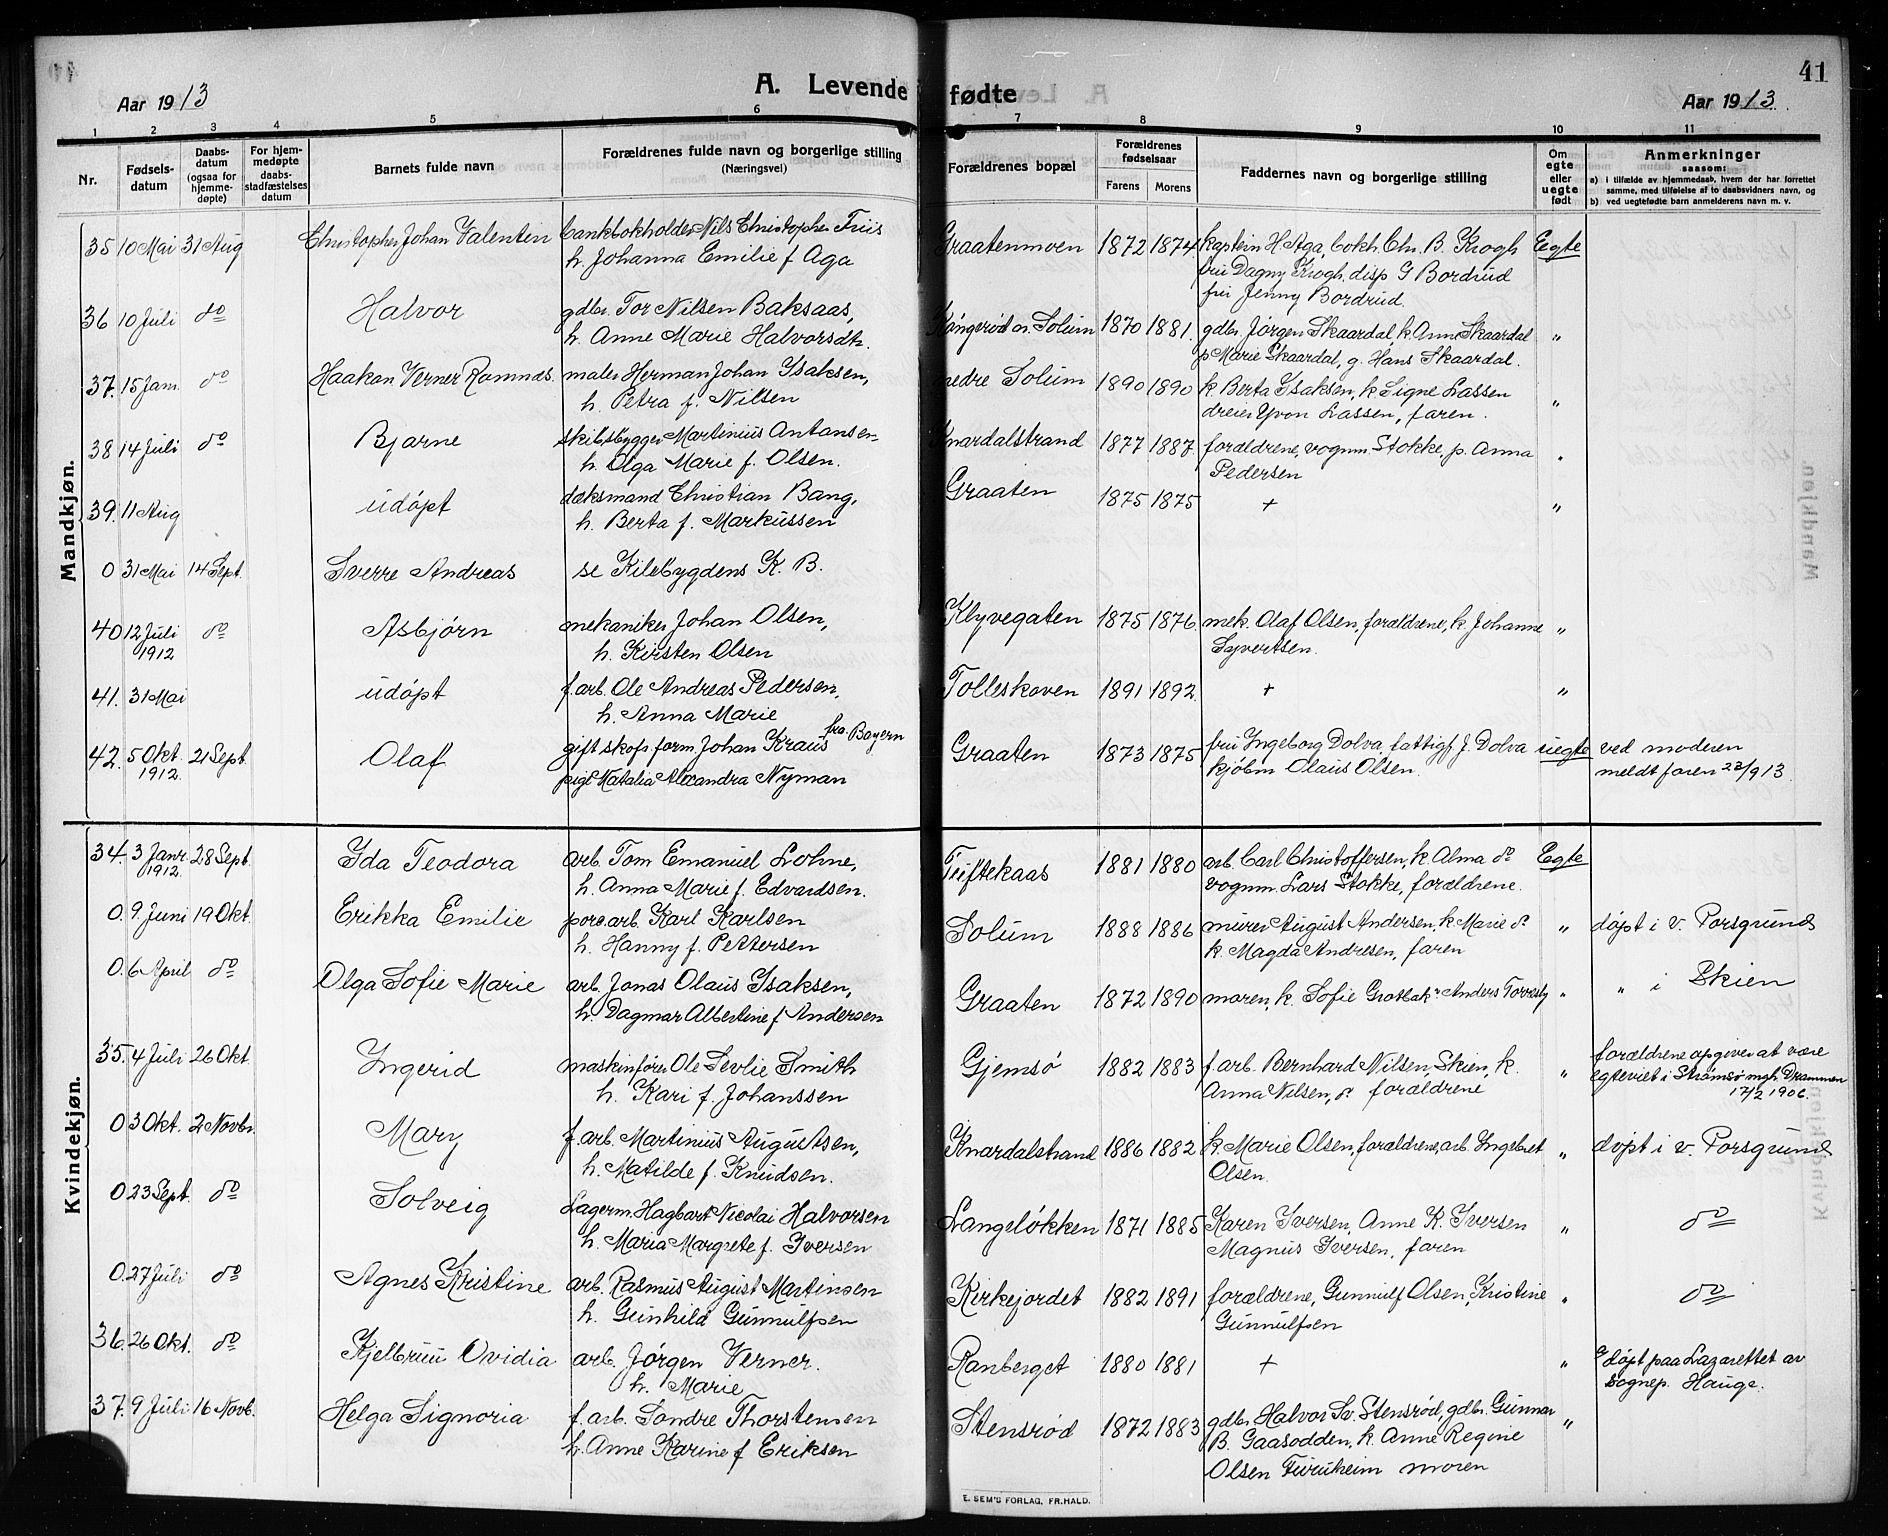 41
Aar 1913 A. Levende fødte Aar 1913
1 2 3 4 5 6 7 8 9 10 11
Nr. Fødselsdatum Daabsdatum (ogsaa for hjemmedøpte) For hjemmedøpte daabsstadfæstelses datum Barnets fulde navn Forældrenes fulde navn og borgerlige stilling (Næringsvei) Forældrenes bopæl Forældrenes fødselsaar Farens Morens Faddernes navn og borgerlige stilling Om egte eller uegte født Anmerkninger saasom:
a) i tilfælde av hjemmedaab, hvem der har forrettet samme, med tilføielse af to daabsvidners navn, og
b) ved uegtefødte barn anmelderens navn m. v.
Mandkjøn.
35 10 Mai 31 Aug Christopher Johan Valentin bankbokholder Nils Christopher Friis Graatenmoen 1872 1874 kaptein H Aga, bokh. Chr. B. Krogh Egte
h. Johanna Emilie f Aga fru Dagny Krogh, disp G Bordrud
frk Jenny Bordrud.
36 10 Juli do Halvor gdbr. Tor Nilsen Baksaas, Kongerød n. Solum 1870 1881. gdbr. Jørgen Skaardal, k Anne Skaardal "
h. Anne Marie Halvorsdtr. p Marie Skaardal, g. Hans Skaardal.
37. 15 Jan. do Haakon Verner Ramnæs maler Herman Johan Isaksen, nedre Solum 1890 1890 k Berta Isaksen, k Signe Lassen "
h. Petra f. Nilsen dreier Yvon Lassen, faren.
38 14 Juli do Bjarne skibsbygger Martinius Antonsen Knardalstrand 1877 1887. forældrene, vognm. Stokke, p. Anna "
h. Olga Marie f. Olsen. Pedersen
39. 11 Aug udøpt dæksmand Christian Bang, Graaten 1875 1875 + "
h. Berta f. Markussen
0 31 Mai 14 Sept. Sverre Andreas se Kilebygdens K. B.
40 12 Juli do Asbjørn mekaniker Johan Olsen, Klyvegaten 1875 1876 mek. Olaf Olsen, forældrene, k. Johanne "
1912 h. Kirsten Olsen Syvertsen.
41. 31 Mai udøpt f.arb. Ole Andreas Pedersen, Tolleskoven 1891 1892 + "
h. Anna Marie
42. 5 Okt. 21 Sept Olaf gift skofs.form. Johan Kraus fra Bayern Graaten 1873 1875 fru Ingeborg Dolva, fattigf. J. Dolva uegte ved moderen
1912. pige Natalia Alexandra Nyman kjøbm Olaus Olsen. meldt faren 23/9 13.
Kvindekjøn.
34. 3 Janr. 28 Sept. Ida Teodora arb. Tom Emanuel Lohne, Tuftekaas 1881 1880 arb. Carl Christoffersen, k. Alma do Egte
1912. h. Anna Marie f. Edvardsen. vognm. Lars Stokke, forældrene.
0. 9. Juni 19 Okt. Erikka Emilie porc.arb. Karl Karlsen Solum 1888 1886 murer August Andersen, k Marie do " døpt i v. Porsgrund
h. Hanny f. Pettersen k. Magda Andresen, faren
0. 6 April do Olga Sofie Marie arb. Jonas Olaus Isaksen, Graaten 1872 1890 moren, k. Sofie Anders " " i Skien
h. Dagmar Albertine f Andersen
35. 4 Juli 26 Okt. Ingerid maskinfører Ole Sevlie Smith Gjemsø 1882 1883 f.arb. Bernhard Nilsen, Skien, k. " forældrene opgiver at være
h. Kari f. Johanssen Anna Nilsen, do forældrene egteviet i Strømsø mgh. Drammen
17/2 1906.
0 3 Okt. 2 Novbr. Mary f.arb. Martinius Augustsen, Knardalstrand 1886 1882 k. Marie Olsen, forældrene, arb. Ingebret " døpt i v. Porsgrund
h. Matilde f. Knudsen. Olsen.
0 23 Sept. do Solveig Lagerm. Hagbart Nicolai Halvorsen Langeløkken 1871 1885 Karen Iversen, Anne K. Iversen " do
h. Maria Margrete f. Iversen Magnus Iversen, faren
0. 27 Juli do Agnes Kristine arb. Rasmus August Martinsen Kirkejordet 1882 1891 forældrene, Gunnulf Olsen, Kristine " do
h. Gunhild Gunnulfsen Gunnulfsen
36. 26 Okt. do Kjelbruu Ovidia arb. Jørgen Verner. Ranberget 1880 1881 + " døpt paa Lazarettet av
h. Marie sognep. Hauge.
37. 9 Juli 16 Novb. Helga Signoria f. arb. Sondre Thorstensen Stensrød 1872 1883 gdbr. Halvor Sv. Stensrød, gdbr. Gunnar "
h. Anne Karine f Eriksen B. Gaasodden, k. Anne Regine
Olsen Furuheim moren
E. SEM'S FORLAG, FR.HALD.